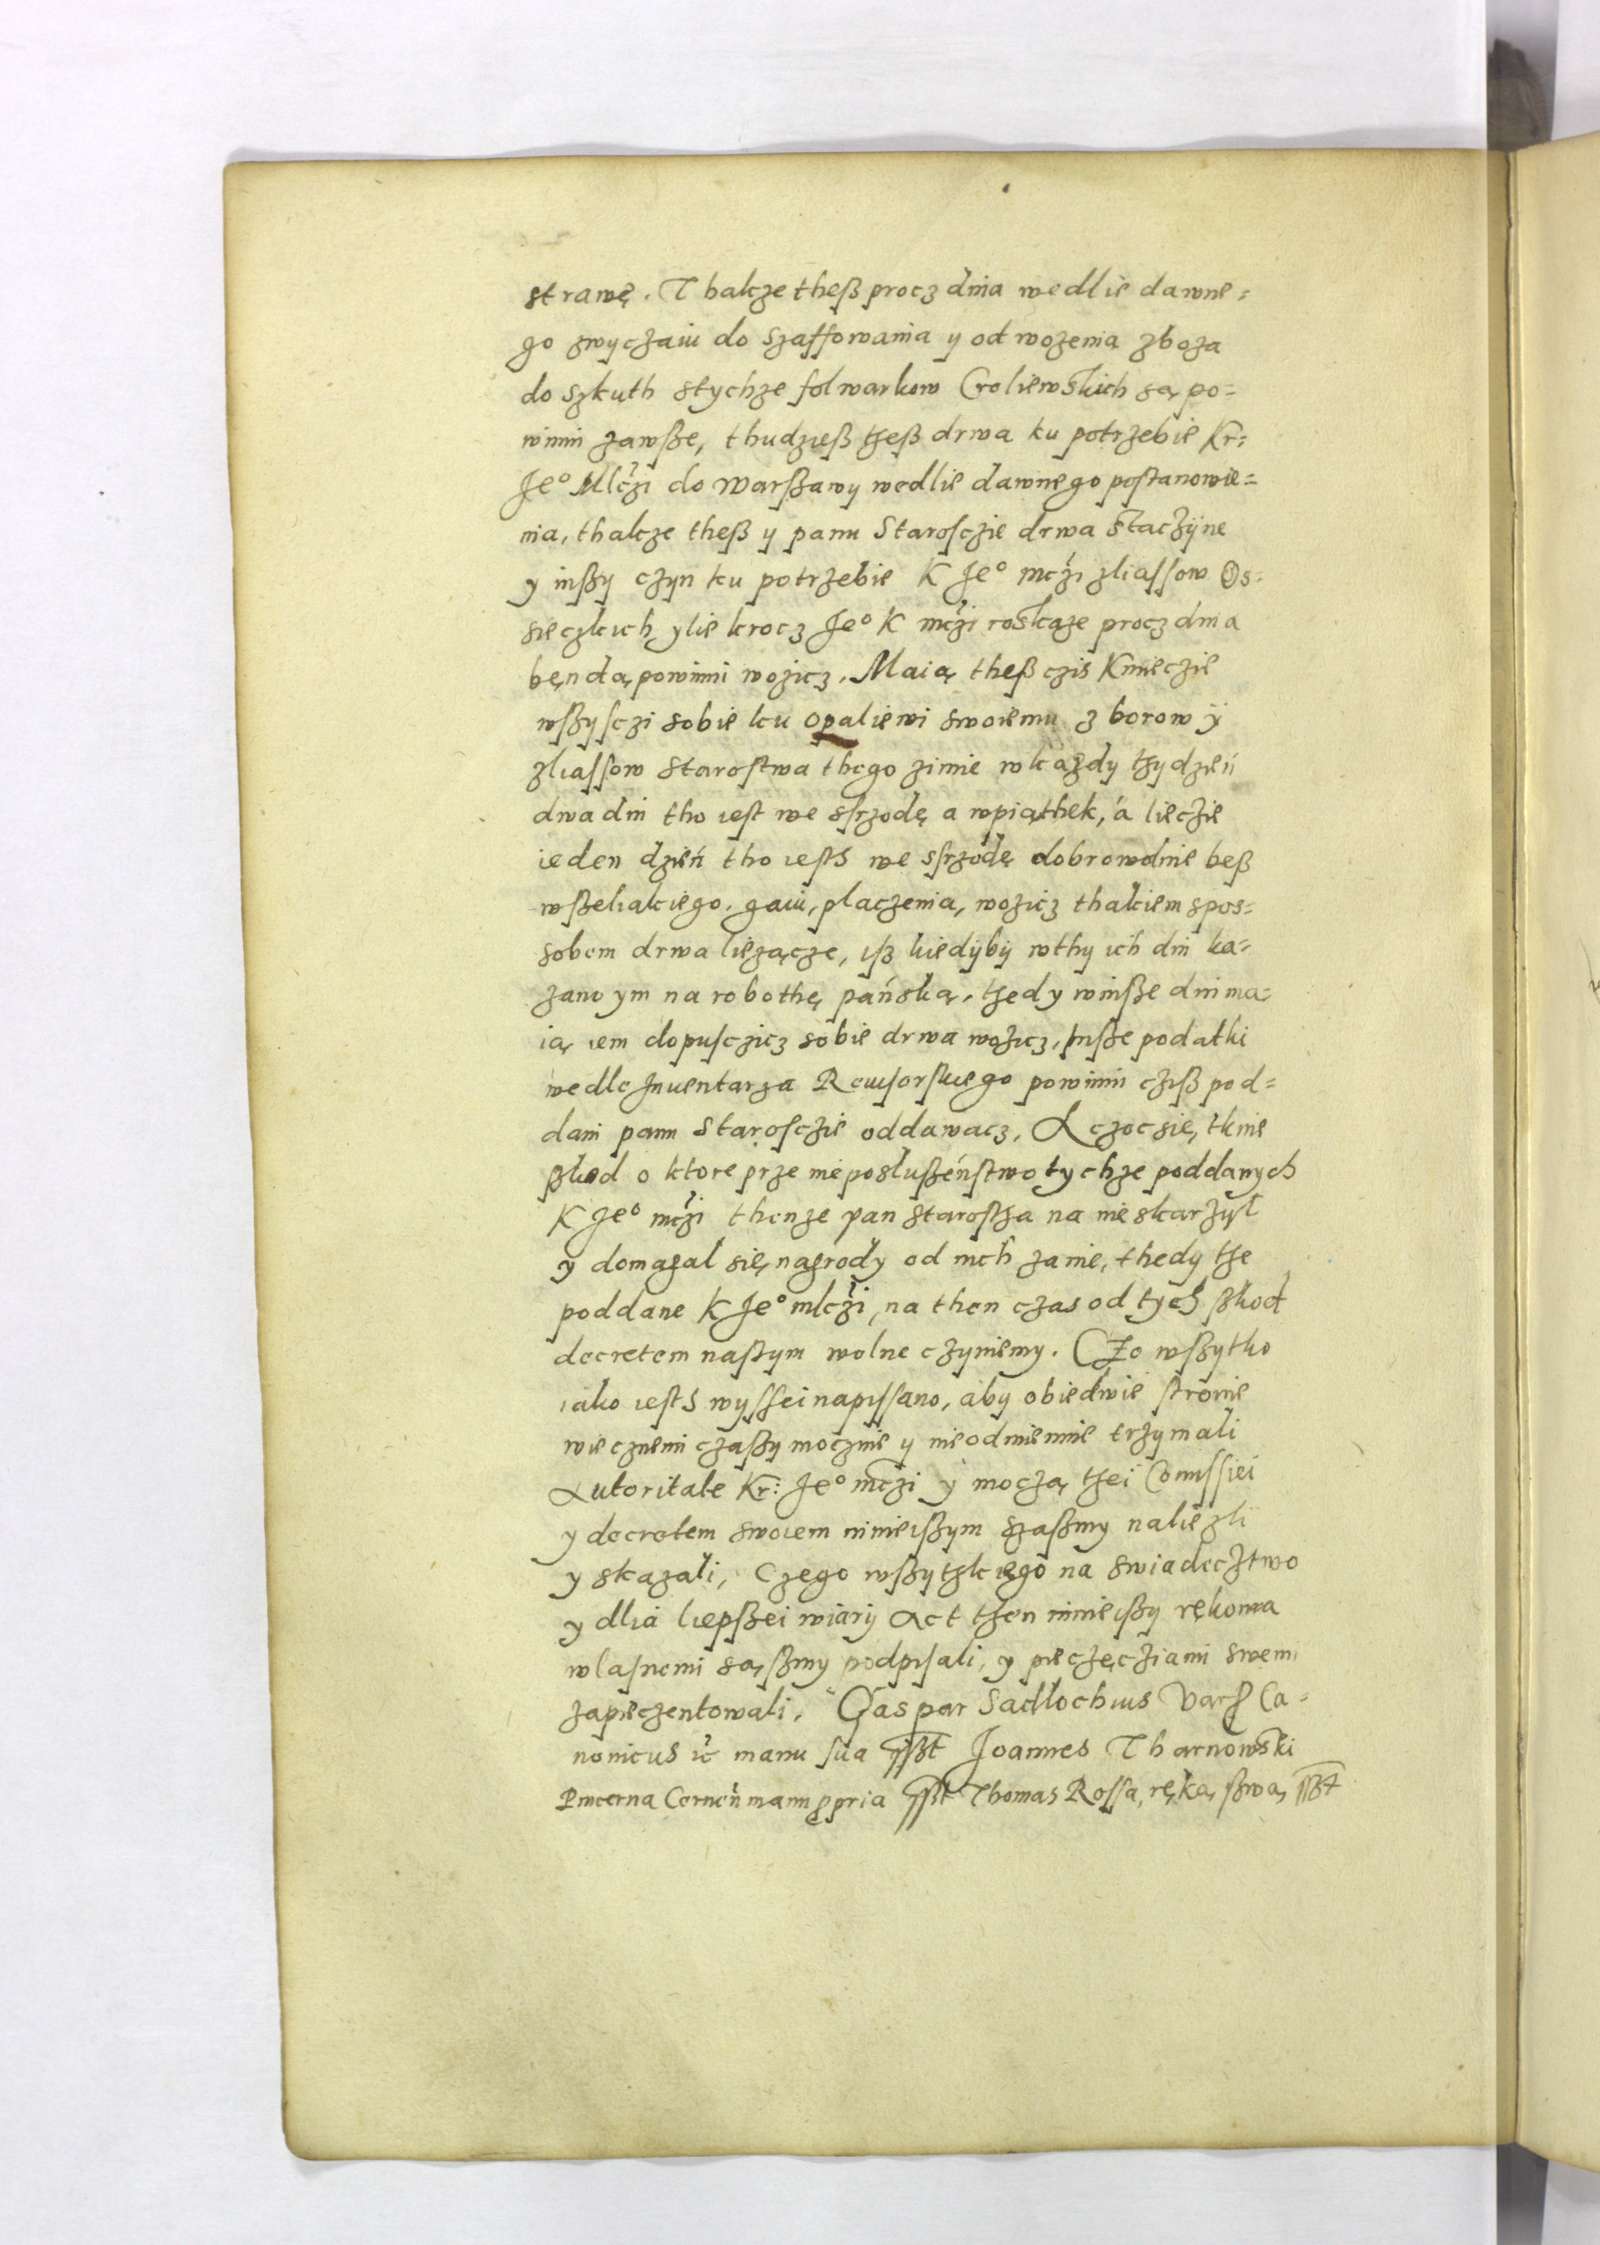 strawę. Thakze theß procz dnia wedlie dawne=
go zwyczaiu do szaffowania y odwozenia zboza
do szkuth stychze folwarkow Croliewskich są po=
winni zawsße, thudzieß tzeß drwa ku potrzebie Kr:
Jeº Mlczi do Warßawy wedlie dawnego postanowie=
nia, thakze theß y panu Starosczie drwa staczyne
y inßy czyn ku potrzebie K Jeº mczi zliassow Os=
sieczkich, ylie krocz Jeº K mczi roskaze procz dnia
bęndą powinni wozicz. Maią theß czis Kmieczie
wßysczi sobie ku opaliewi swoiemu z borow ÿ
zliassow starostwa thego zimie wkazdy tzydzień
dwa dni tho iest we ssrzodę a wpiąthek, á liecie
ieden dzień tho iesth we ssrzodę dobrowolnie beß
wßeliakiego gaiu, placzenia, wozicz thakiem spos=
sobem drwa liezącze, isz kiedÿbÿ wthy ich dni ka=
zano ym na robothę pańską, tzedy winße dni ma=
ią iem dopusczicz sobie drwa wozicz, Inße podatki
wedle Inuentarza Rewisorskiego powinni cziß pod=
dani panu Starosczie oddawacz, A czoc się, tknie
ßkod o ktore prze nieposlußeństwo tychze poddanych
K Jeº mczi thenze pan starosta na nie skarzÿl
y domagal się nagrody od nich zanie, thedy tze
poddane K Jeº mlczi, na then czas od tych ßkod
decretem naßym wolne czyniemy. Czo wßytko
iako iesth wyssei napissano, aby obiedwie stronie
wiecznemi czaßy mocznie y nieodmiennie trzymali
Autoritate Kr: Jeº mczi ÿ moczą tzei Comissiei
y decretem swoiem ninieißym szaßmy naliezli
y skazali, Czego wßytzkiego na swiadecztwo
y dlia liepßei wiarÿ Act tzen ninieißy rękoma
wlasnemi sąßmy podpisali, y pieczęcziami swemi
zapieczentowali. Gaspar Sadlochius Varß Ca=
nonicus ic manu sua ßßt Joannes Tharnowski
Pincerna Cernen manu ppria ßßt Thomas Rossa, ręką ßwą ßßt